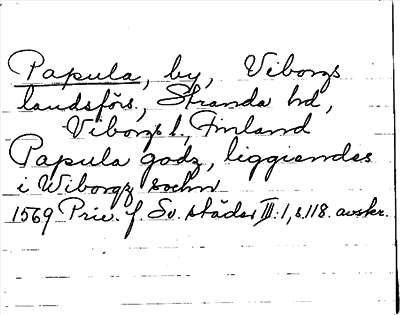 Papula, by, Viborgs
landsförs., Stranda hd,
Viborgs l., Finland
Papula godz, liggiendes
i Wiborgz sochn
1569 Priv. f. Sv. städer III:1, s. 118. avskr.